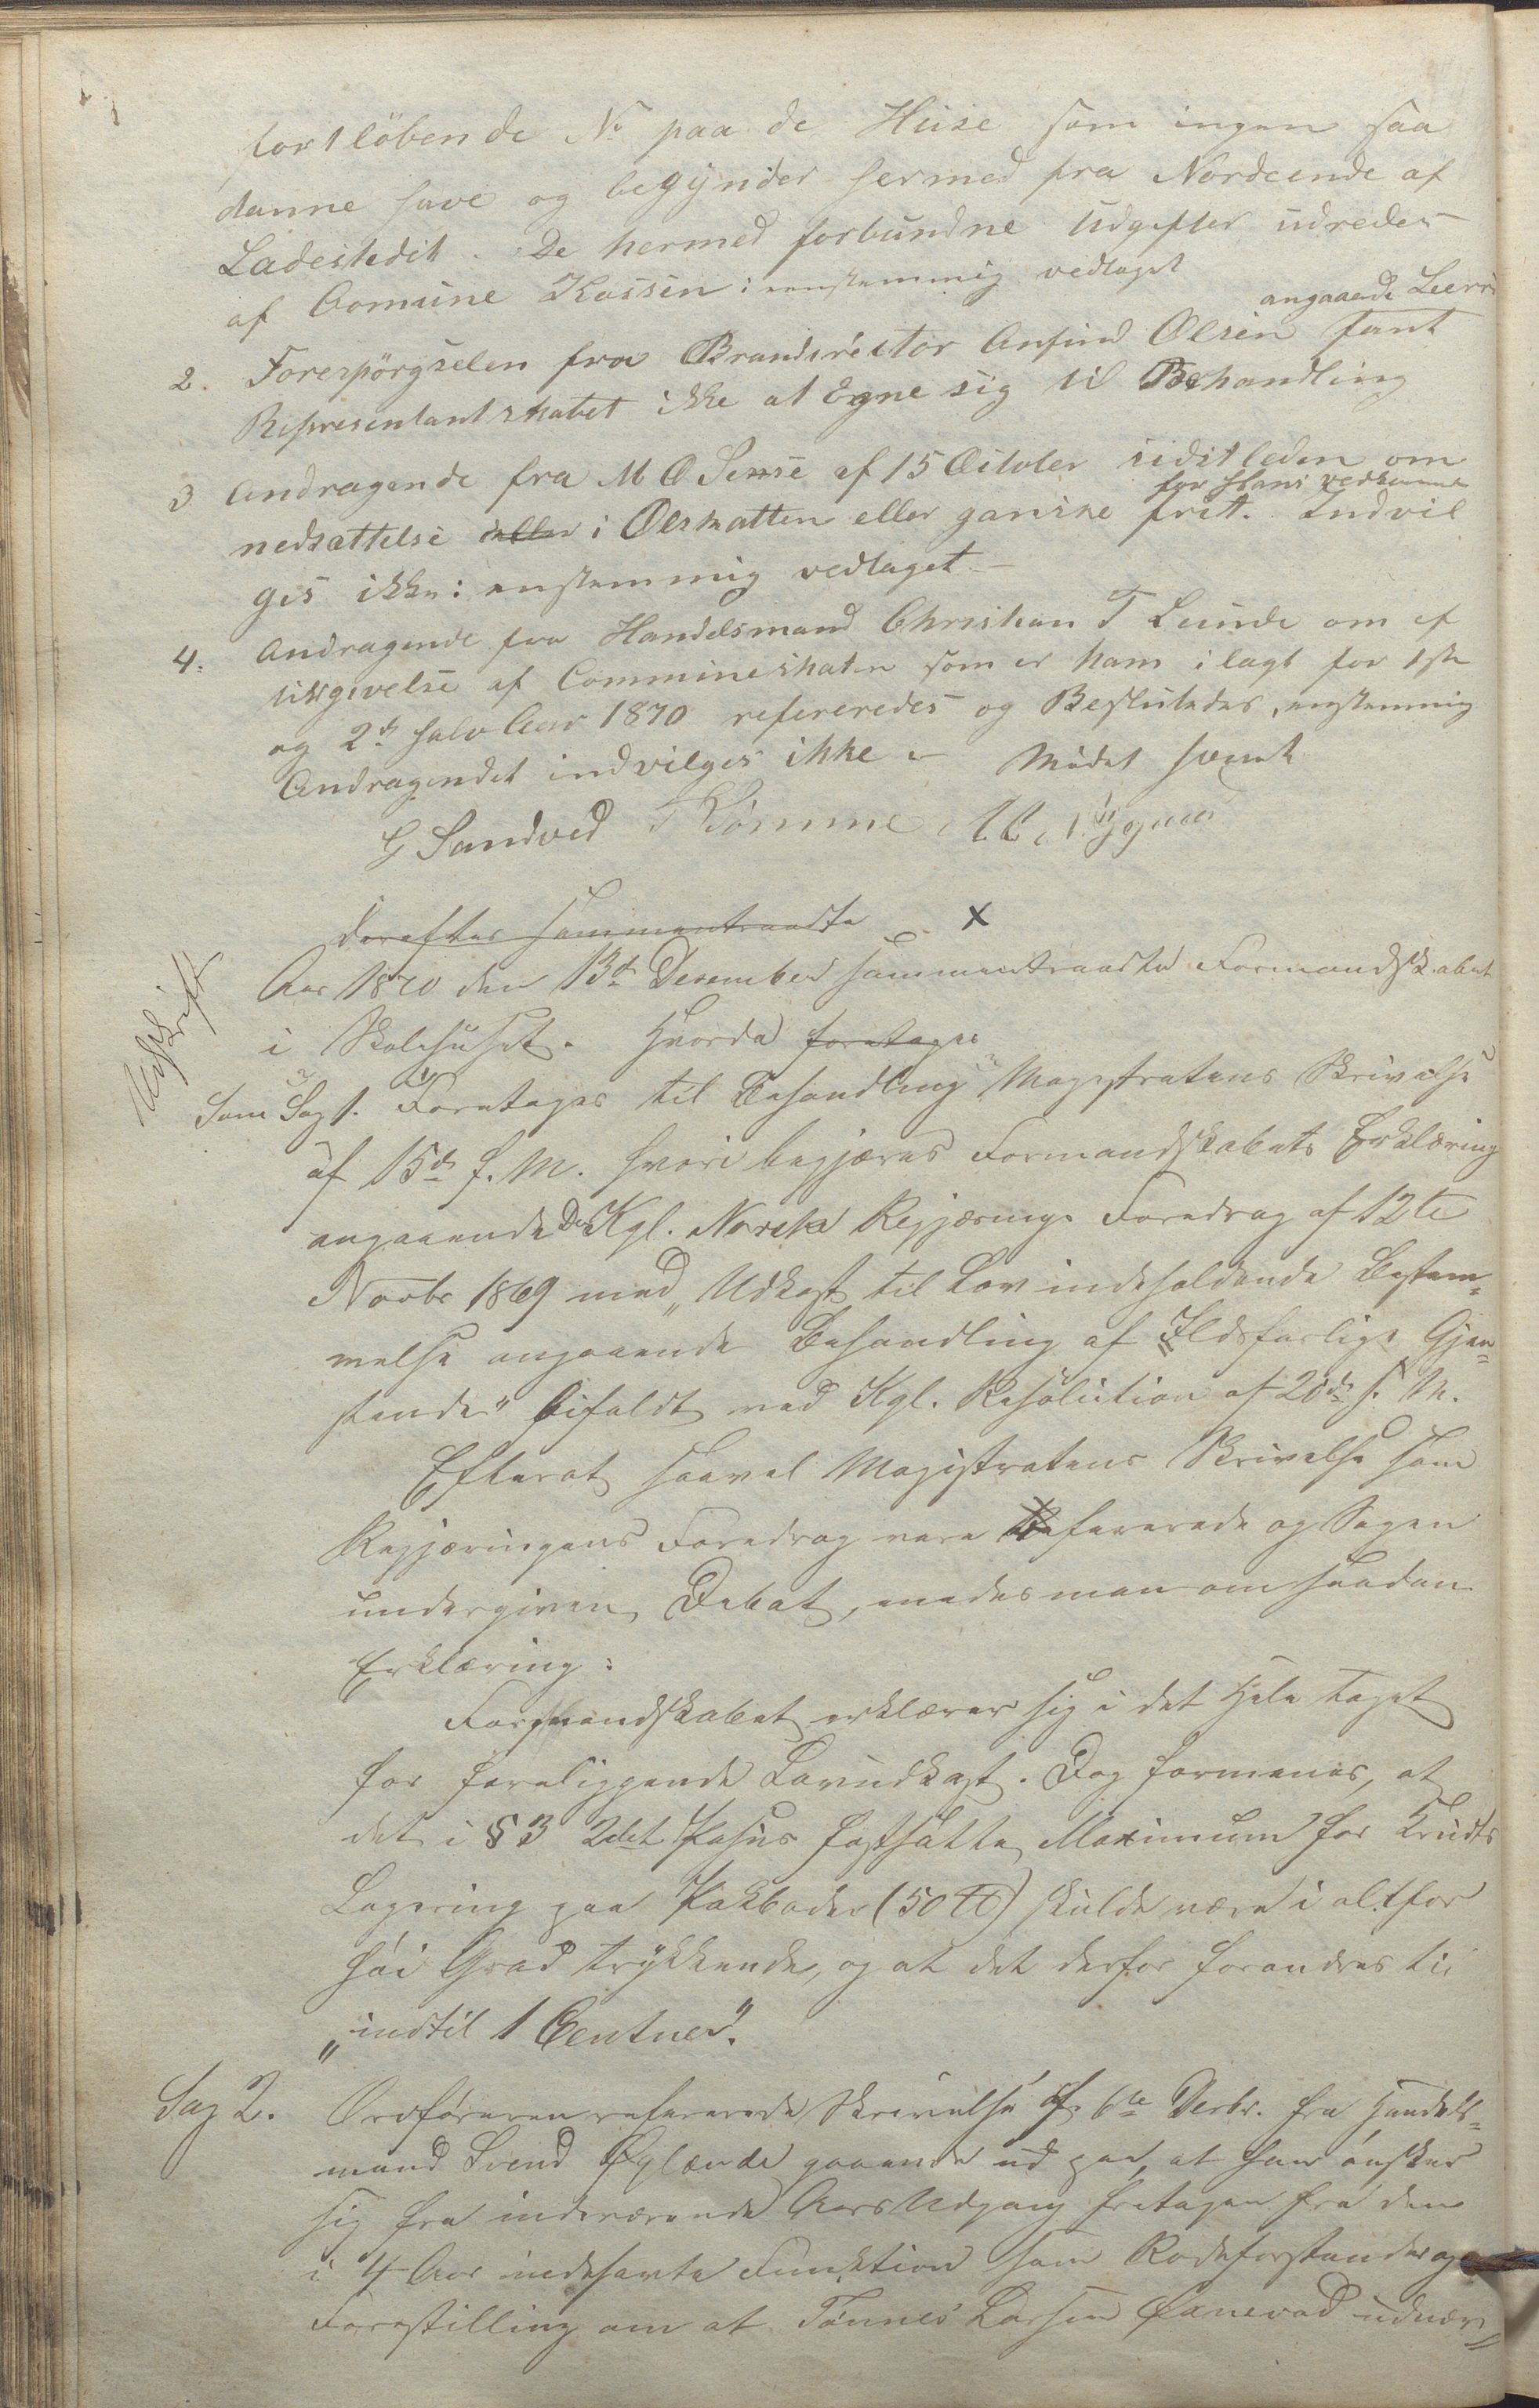 fortløbende No paa de Huse som ingen saa
danne have og begynder hermed fra Nordeende af
Ladestedet. De hermed forbundne Udgifter udredes
af Comune Kassen: eenstemmig vedtaget
angaaende Leer
2. Forespørgselen fra Branddirector Anfind Olsen fant
Representantskabet ikke at Egne sig til Behandling
3 Andragende fra M O af 15 October sidstleden om
for Hans vedkommende
nedsættelse eller i Ølskatten eller ganske frit. Indvil
ges ikke: enstemmig vedtaget.—
4. Andragende fra Handelsmand Christian T Lunde om ef
tergivelse af Communeskaten som er ham ilagt for 1ste
og 2det halv Aar 1870 refereredes og Besluttedes, enstemmig
Andragendet indvilges ikke — Mødet hævet
G Sandved Tømme
derefter sammentraadte x
Aar 1870 den 13de Desember sammentraadte Formandskabet
Udskrift
i Skolehuset. Hvorda foretages
Som Sag 1. Foretages til Behandling Magistratens Skrivelse
af 15de f. M. hvori begjæres Formandskabets Erklæring
angaaende Den Kgl. Norske Regjærings Foredrag af 12te
Novbr 1869 med „Udkast til Lov indeholdende Bestem=
melse angaaende Behandling af Ildsfarlige Gjen=
stande" bifaldt ved Kgl. Resolution af 20de s. M.
Efterat saavel Magistratens Skrivelse som
Regjæringens Foredrag vare Refererede og Sagen
undergiven Debat, enedes man om saadan
Erklæring:
Formandskabet erklærer sig i det Hele taget
for foreliggende Lovudkast. Dog formenes, at
det i § 3 2det Pasus fastsatte Maximum for Krudts
Lagering paa Pakboder (50 ℔) skulde være i altfor
høi Grad trykkende, og at det derfor forandres til
„indtil 1 Centner".
Sag 2. Ordføreren refererede Skrivelse af 6te Decbr. fra Handels=
mand Svend Øglænde gaaende ud paa, at han ønsker
sig fra indeværende Aars Udgang fritagen fra den
i 4 Aar indehavte Funktion som Rodeforstander og
Forestilling om at Tønnes Larsen Hanevad udnæv=